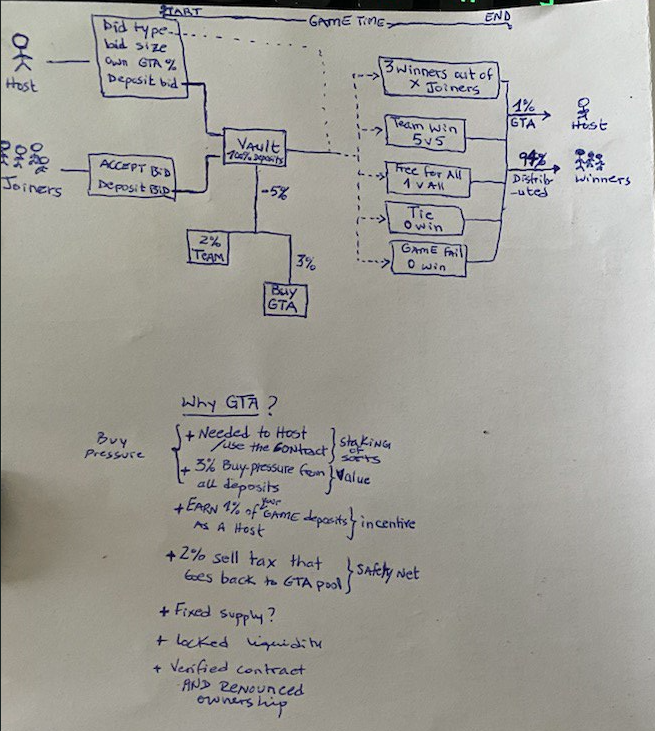 START
GAME TIME
END
Host
bid type
bid size
own GTA %
Deposit bid
Joiners
ACCEPT BID
Deposit BID
VAULT
100% deposits
-5%
2%
TEAM
3%
Buy
GTA
3 winners out of
X Joiners
Team Win
5v5
Free for All
1 v All
Tie
0 win
GAME Fail
0 win
1%
GTA
Host
94%
Distrib-
uted
Winners
Why GTA?
Buy
Pressure
+ Needed to Host
/use the Contract
Staking
of
sorts
+ 3% Buy-pressure from
all deposits
Value
+ EARN 1% of your GAME deposits
AS A Host
incentive
+ 2% sell tax that
Goes back to GTA pool
Safety Net
+ Fixed supply?
+ Locked liquidity
+ Verified contract
AND RENOUNCED
ownership